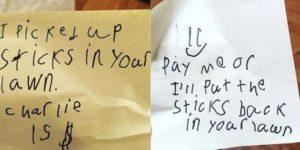 I Picked up
sticks in your
lawn.
charlie
15 $
Pay me or
I'll Put the
sticks back
in your lawn